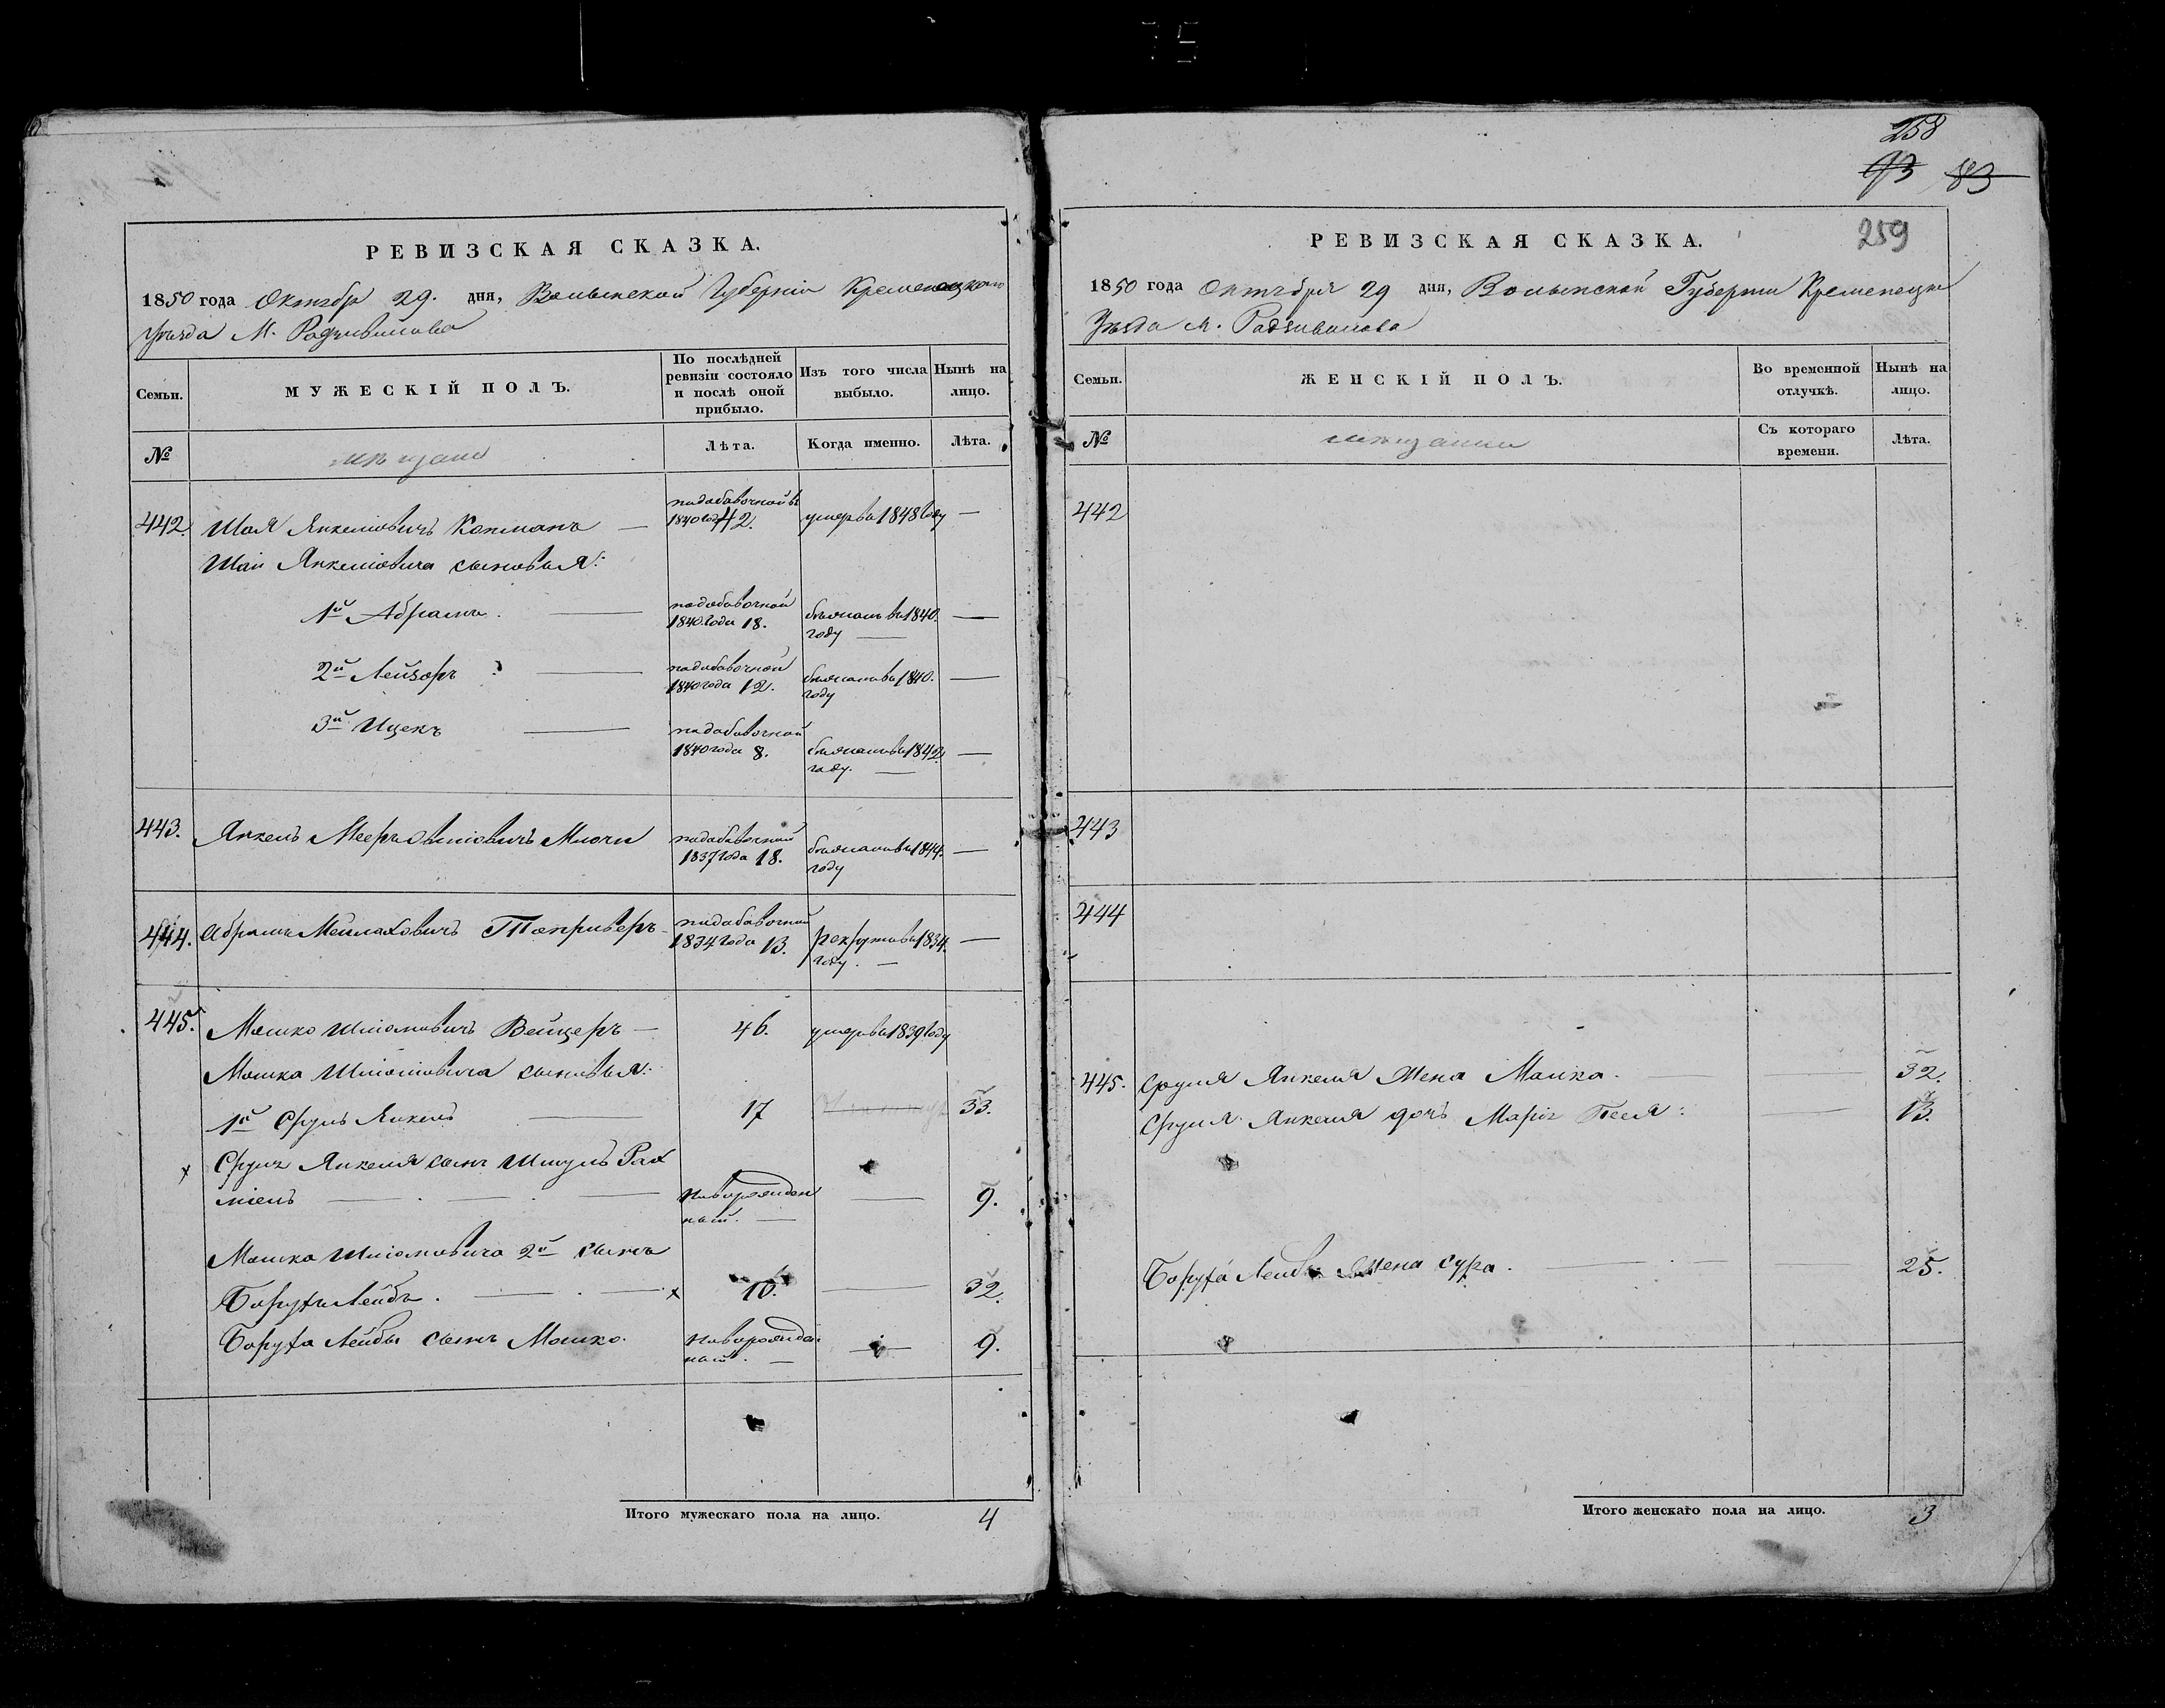 РЕВИЗСКАЯ СКАЗКА.
1850 года Октября 29. дня, Волынской Губернии Кременецкаго
Уезда М. Радзивилова
Семьи.
МУЖЕСКІЙ ПОЛЪ.
По послѣдней ревизіи состояло и послѣ оной прибыло.
Изъ того числа выбыло.
Нынѣ на лицо.
№
мѣщане
Лѣта.
Когда именно.
Лѣта.
442. Шая Янкеліовичъ Копманъ — подобавочной въ 1840 году 42. умеръ въ 1848 году —
Шаи Янкеліовича сыновья:
1й Абрамъ. — подобавочной 1840 года 18. въ 1840. году —
2й Лейзоръ — подобавочной 1840 года 12. въ 1840. году —
3й Ицекъ — подобавочной 1840 года 8. въ 1842. году. —
443. Янкель подобавочной 1837 года 18. въ 1844. году —
444. Абрамъ Мейлаховичъ подобавочной 1834 года 13. рекрутъ въ 1834. году. —
445. Мошко Шліомовичъ Вейцеръ — 46. умеръ въ 1839 году
Мошка Шліомовича сыновья:
1й Сруль Янкель — 17 33.
х Сруля Янкеля сынъ Шмуль Рах
міель — новорожден
ный. — 9.
Мошка Шліомовича 2й сынъ
Борухъ Лейбъ. — х 10. — 32.
Боруха Лейбы сынъ Мошко. новорожден
ный. — 9.
Итого мужескаго пола на лицо. 4
258
93 83
259
РЕВИЗСКАЯ СКАЗКА.
1850 года Октября 29 дня, Волынской Губернии Кременецка
Уезда м. Радзивилова
Семьи.
ЖЕНСКІЙ ПОЛЪ.
Во временной отлучкѣ.
Нынѣ на лицо.
№
мѣщанки
Съ котораго времени.
Лѣта.
442
443
444
445. Сруля Янкеля жена Малка. — 32.
Сруля Янкеля дочь Песя. — 13.
Боруха Лейбы жена Сура. — 25.
Итого женскаго пола на лицо. 3